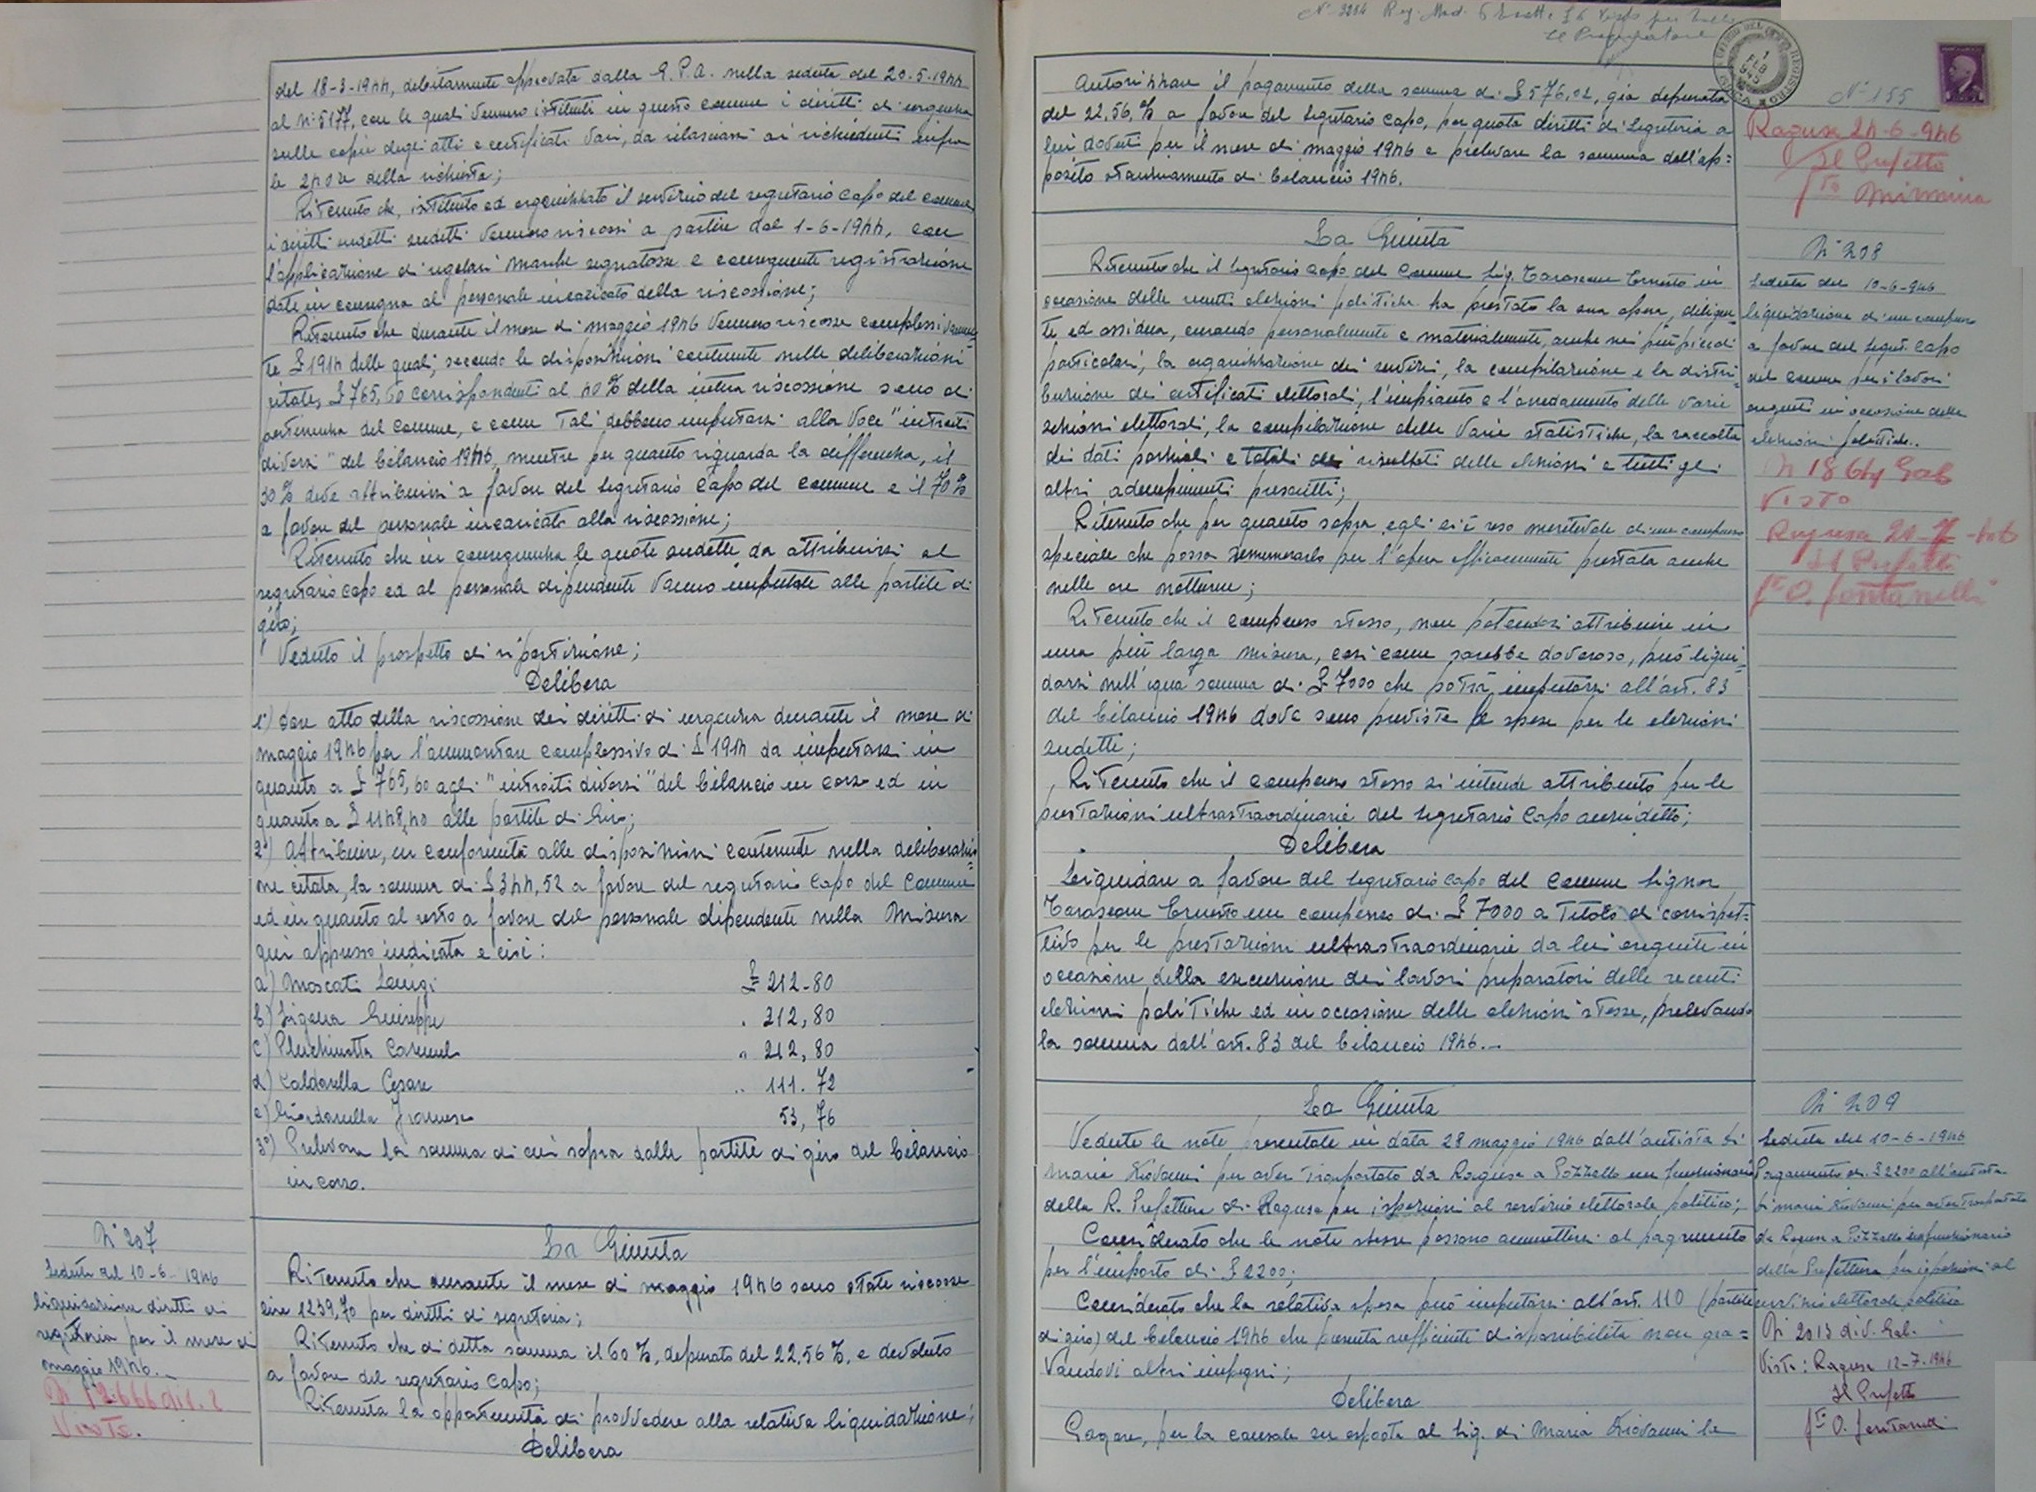 del 18-3-1944, debitamente approvata dalla G.P.A. nella seduta del 20-5-1944
al N° 5177, con le quali vennero istituiti in questo comune i diritti di urgenza
sulle copie degli atti e certificati vari, da rilasciarsi ai richiedenti
le 24 ore della richiesta;
Ritenuto che, istituito ed organizzato il servizio del segretario capo del comune
i diritti sudetti vennero riscossi a partire dal 1-6-1944, con
l'applicazione di regolari marche segnatasse e conseguente registrazione
date in consegna al personale incaricato della riscossione;
Ritenuto che durante il mese di maggio 1946 vennero riscosse complessivamen-
te £ 1914 delle quali, secondo le disposizioni contenute nelle deliberazioni
citate, £ 765,60 corrispondenti al 40% della intera riscossione sono di
pertinenza del comune, e come tali debbono imputarsi alla voce "introiti
diversi" del bilancio 1946, mentre per quanto riguarda la differenza, il
30% deve attribuirsi a favore del segretario capo del comune e il 70%
a favore del personale incaricato alla riscossione;
Ritenuto che in conseguenza le quote sudette da attribuirsi al
segretario capo ed al personale dipendente vanno imputate alle partite di
giro;
Veduto il prospetto di ripartizione;
Delibera
1°) Dare atto della riscossione dei diritti di urgenza durante il mese di
maggio 1946 per l'ammontare complessivo di £ 1914 da imputarsi in
quanto a £ 765,60 agli "introiti diversi" del bilancio in corso ed in
quanto a £ 1148,40 alle partite di Giro;
2°) Attribuire, in conformità alle disposizioni contenute nella deliberazio-
ne citata, la somma di £ 344,52 a favore del segretario capo del comune
ed in quanto al resto a favore del personale dipendente nella misura
qui appresso indicata e cioè:
a) Moscati Luigi £ 212-80
b) Giuseppe " 212,80
c) Pluchinotta Carmelo " 212,80
d) Caldarella Cesare " 111.72
e) Giardanella Francesco 53,76
3°) Prelevare la somma di cui sopra dalle partite di giro del bilancio
in corso.
N° 207
Seduta del 10-6-1946
liquidazione diritti di
segreteria per il mese di
maggio 1946.
Visto.
La Giunta
Ritenuto che durante il mese di maggio 1946 sono state riscosse
lire 1239,70 per diritti di segreteria;
Ritenuto che di detta somma il 60%, depurato del 22,56%, è devoluto
a favore del segretario capo;
Ritenuta la opportunità di provvedere alla relativa liquidazione;
Delibera
Il Procuratore
Autorizzare il pagamento della somma di £ 576,02, già depurata
del 22,56% a favore del segretario capo, per quota diritti di segreteria a
lui dovuti per il mese di maggio 1946 e prelevare la somma dall'ap-
posito stanziamento di bilancio 1946.
N° 155
Ragusa 24-6-946
Il Prefetto
fto Mirmina
La Giunta
Ritenuto che il segretario capo del comune Sig. Tarascone Ernesto in
occasione delle recenti elezioni politiche ha prestato la sua opera, diligen-
te ed assidua, curando personalmente e materialmente, anche nei più piccoli
particolari, la organizzazione dei servizi, la compilazione e la distri-
buzione dei certificati elettorali, l'impianto e l'arredamento delle varie
sezioni elettorali, la compilazione delle varie statistiche, la raccolta
dei dati parziali e totali dei risultati delle elezioni e tutti gli
altri adempimenti prescritti;
Ritenuto che per quanto sopra egli si è reso meritevole di un compenso
speciale che possa remunerarlo per l'opera efficacemente prestata anche
nelle ore notturne;
Ritenuto che il compenso stesso, non potendosi attribuire in
una più larga misura, così come sarebbe doveroso, può liqui-
darsi nell'equa somma di £ 7000 che potrà imputarsi all'art. 83
del bilancio 1946 dove sono previste le spese per le elezioni
sudette;
Ritenuto che il compenso stesso si intende attribuito per le
prestazioni ultrastraordinarie del segretario capo anzidetto;
Delibera
Liquidare a favore del segretario capo del comune Signor
Tarascone Ernesto un compenso di £ 7000 a titolo di corrispet-
tivo per le prestazioni ultrastraordinarie da lui eseguite in
occasione della esecuzione dei lavori preparatori delle recenti
elezioni politiche ed in occasione delle elezioni stesse, prelevando
la somma dall'art. 83 del bilancio 1946.
N° 208
Seduta del 10-6-946
liquidazione di un compenso
a favore del segret. capo
del comune per i lavori
eseguiti in occasione delle
elezioni politiche.
Visto
Il Prefetto
fto O. Fontanelli
La Giunta
Vedute le note presentate in data 28 maggio 1946 dall'autista Di
Maria Giovanni per aver trasportato da Ragusa a Pozzallo un funzionario
della R. Prefettura di Ragusa per ispezioni al servizio elettorale politico;
Considerato che le note stesse possono ammettersi al pagamento
per l'importo di £ 2200;
Considerato che la relativa spesa può imputarsi all'art. 110 (partite
di giro) del bilancio 1946 che presenta sufficiente disponibilità non gra-
vandovi altri impegni;
Delibera
Pagare, per la causale su esposta al Sig. di Maria Giovanni le
N° 209
Seduta del 10-6-1946
Pagamento di £ 2200 all'autista
Di Maria Giovanni per aver trasportato
da Ragusa a Pozzallo un funzionario
della Prefettura per ispezioni al
servizio elettorale politico
N° 2013 div. Gab.
Visto: Ragusa 12-7-1946
Il Prefetto
fto O. Fontanelli